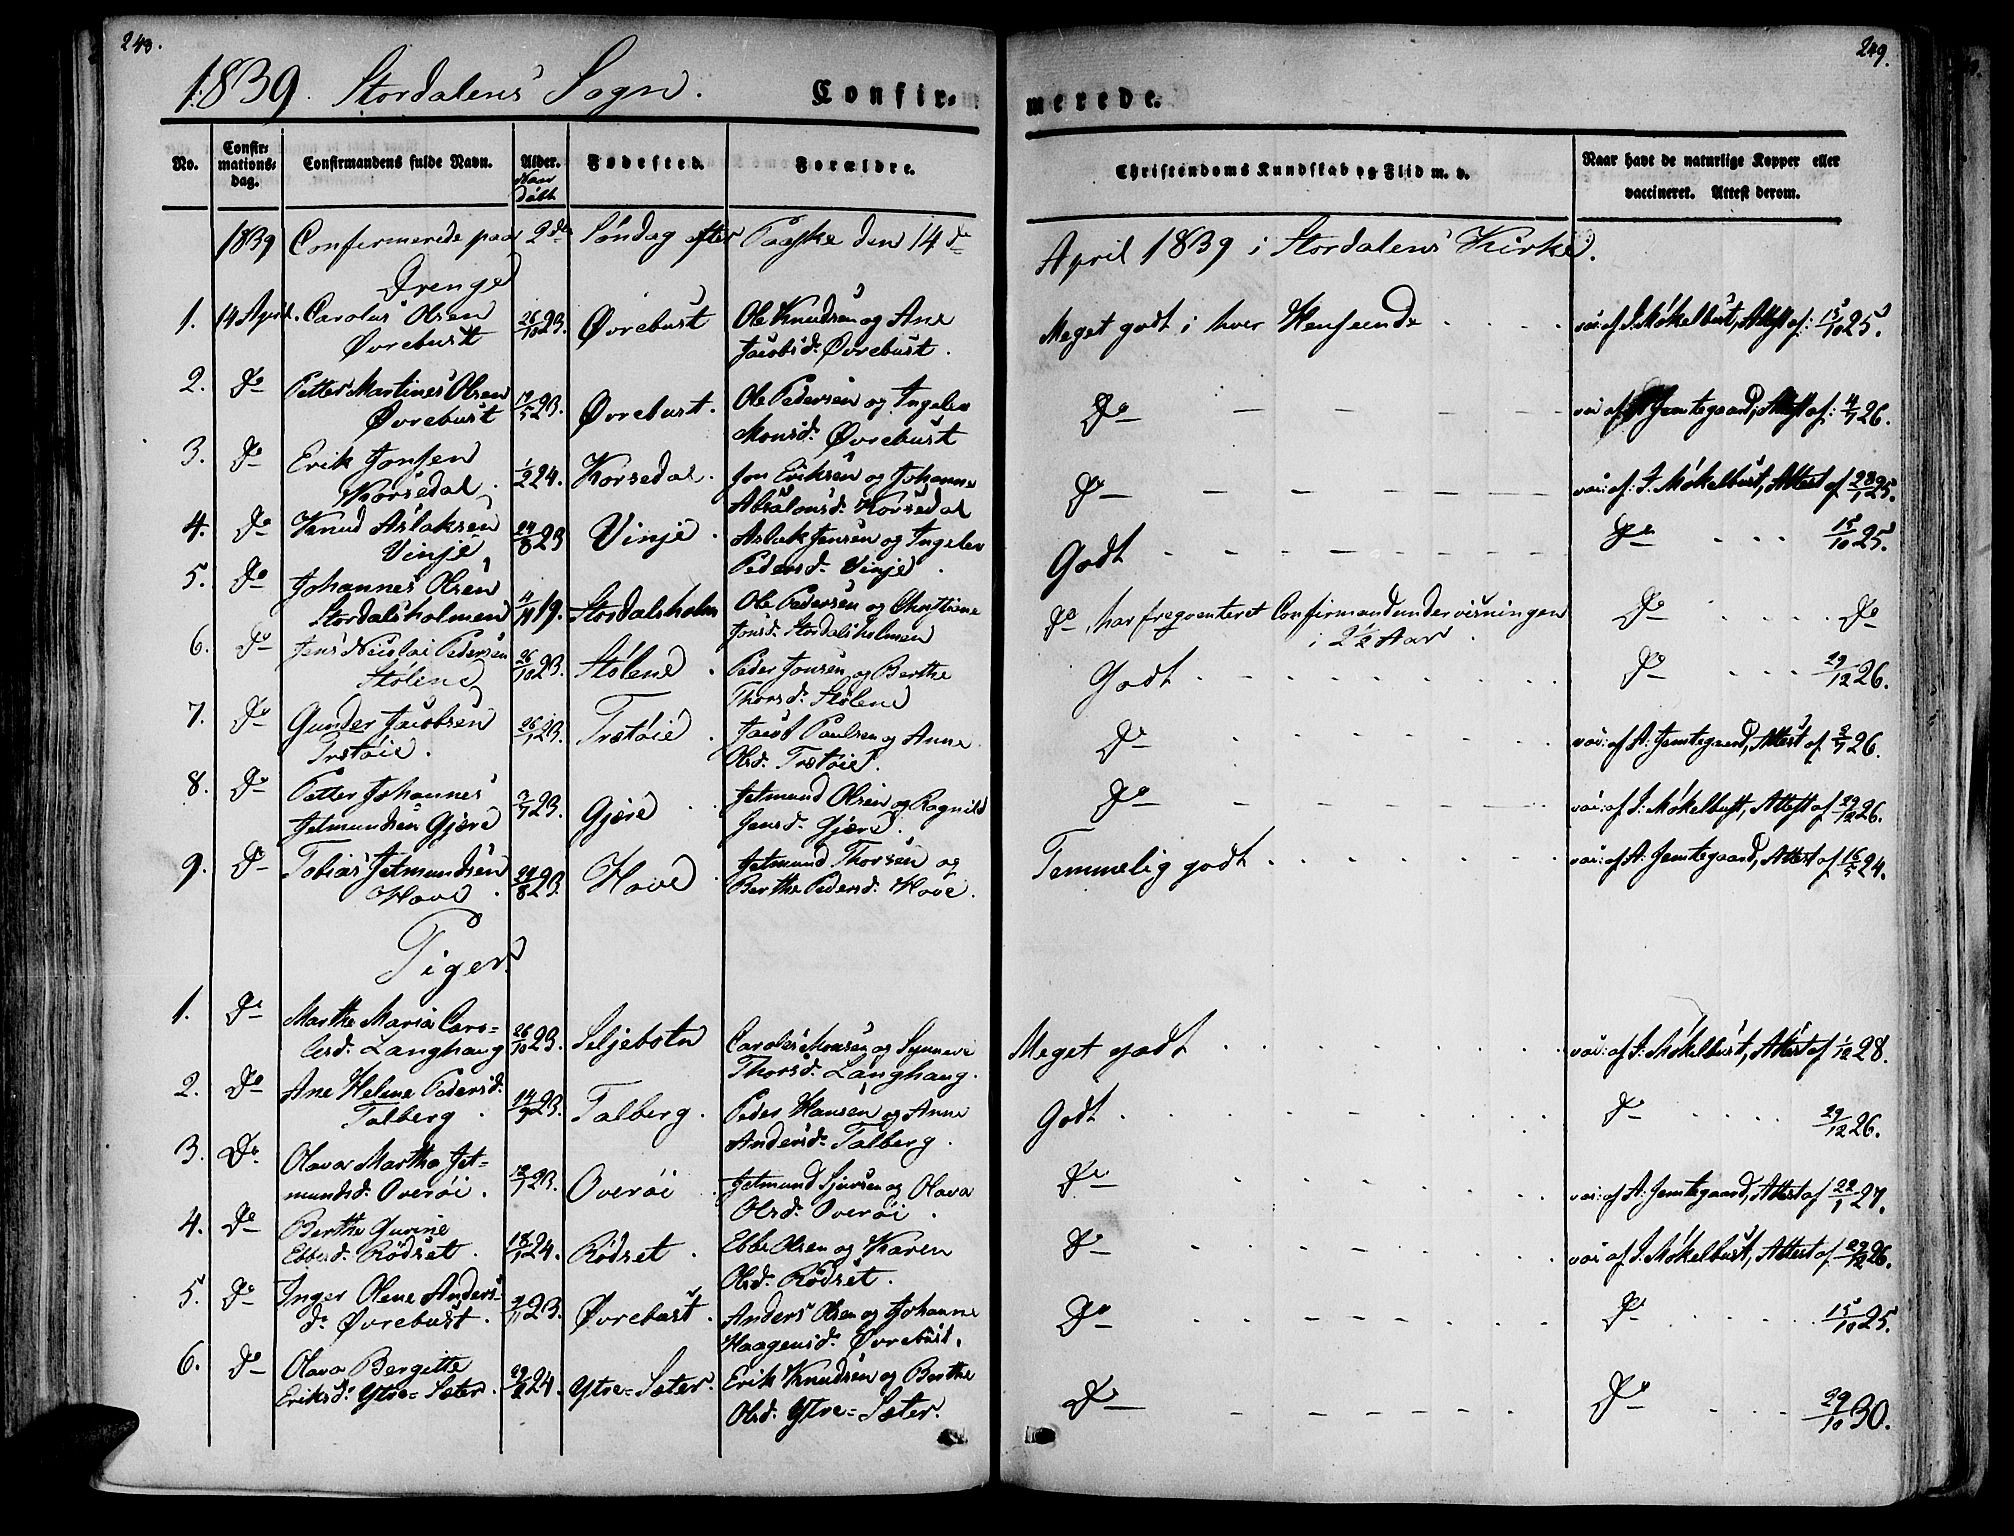 243.
1839. Stordalens Sogn. Confir-
No. Confir-mations-dag. Confirmandens fulde Navn. Alder. Naar døbt Fødested. Forældre.
1839 Confirmerede paa 2de Søndag efter Paaske den 14de
Drenge
1. 14 April. Carolus Olsen 26/10 23. Øvrebust Ole Knudsen og Ane
Øvrebust Jacobsd: Øvrebust.
2. Do Petter Martines Olsen 19/5 23. Øvrebust. Ole Pedersen og Ingelev
Øvrebust Monsd: Øvrebust
3. Do Erik Jonsen 1/2 24. Korsedal. Jon Eriksen og Johanne
Korsedal. Absalonsd: Korsedal
4. Do Knud Aslaksen 24/8 23 Vinje. Aslak Jensen og Ingelev
Vinje Pedersd: Vinje.
5. Do Johannes Olsen 4/11 19. Stordalsholm Ole Pedersen og Christiane
Stordalsholmen Jonsd: Stordalsholmen
6. Do Jens Nicolai Pedersen 26/10 23. Stølene. Peder Jonsen og Berthe
Stølene Thorsd: Stølene
7. Do Gunder Jacobsen 26/1 23. Trøtøie. Jacob Paulsen og Anne
Trøtøie. Olsd: Trøtøie.
8. Do Petter Johannes 3/7 23. Gjære. Jetmund Olsen og Ragnild
Jetmundsen Gjære Jensd: Gjære.
9. Do Tobias Jetmundsen 24/8 23. Hove. Jetmund Thorsen og
Hove. Berthe Pedersd: Hove.
Piger.
1. Do Marthe Maria Caro-
lesd: Langhaug 26/10 23. Seljebotn Caroles Monsen og Synneve
Thorsd: Langhaug.
2. Do Ane Helene Pedersd: 14/9 23. Talberg. Peder Hansen og Anne
Talberg. Andersd: Talberg.
3. Do Olava Martha Jet-
mundsd: Overøi. 13/7 23. Overøi. Jetmund Sjursen og Olava
Olsd: Overøi.
4. Do Berthe Gurine
Ebbesd: Rødset. 18/1 24. Rødset. Ebbe Olsen og Karen
Olsd: Rødset.
5. Do Inger Olene Anders-
d: Øvrebust. 9/11 23. Øvrebust. Anders Olsen og Johanne
Haagensd: Øvrebust.
6. Do Olava Bergitte
Eriksd: Ytre-Sæter. 29/2 24. Ytre-Sæter. Erik Knudsen og Berthe
Olsd: Ytre-Sæter.
249.
merede.
Christendoms Kundskab og Flid m. v. Naar havt de naturlige Kopper eller
vaccineret. Attest derom.
April 1839 i Stordalens Kirke.
Meget godt i hver Henseende . . . . vac: af J. Møkelbust, Attest af: 15/10 25.
Do vac: af A: Jemtegaard, Attest af: 4/7 26.
Do vac: af: J. Møkelbust, Attest af 28/1 25.
Godt Do . . . 15/10 25.
Do, har freqventeret Confirmandundervisningen Do . . . . Do
i 2½ Aar.
Godt . . . . Do . . . 29/12 26.
Do vac: af A: Jemtegaard, Attest af 3/7 26.
Do vac: af J: Møkelbust, Attest af 29/12 26.
Temmelig godt . . . . vac: af A: Jemtegaard, Attest af 16/5 24.
Meget godt . . . . vac: af J: Møkelbust, Attest af 1/12 28.
Godt . . . . Do . . . . 29/12 26.
Do vac: af A: Jemtegaard, Attest af 22/1 27.
Do vac: af J. Møkelbust, Attest af 29/12 26.
Do Do . . . . 15/10 25.
Do Do . . . . 29/10 30.